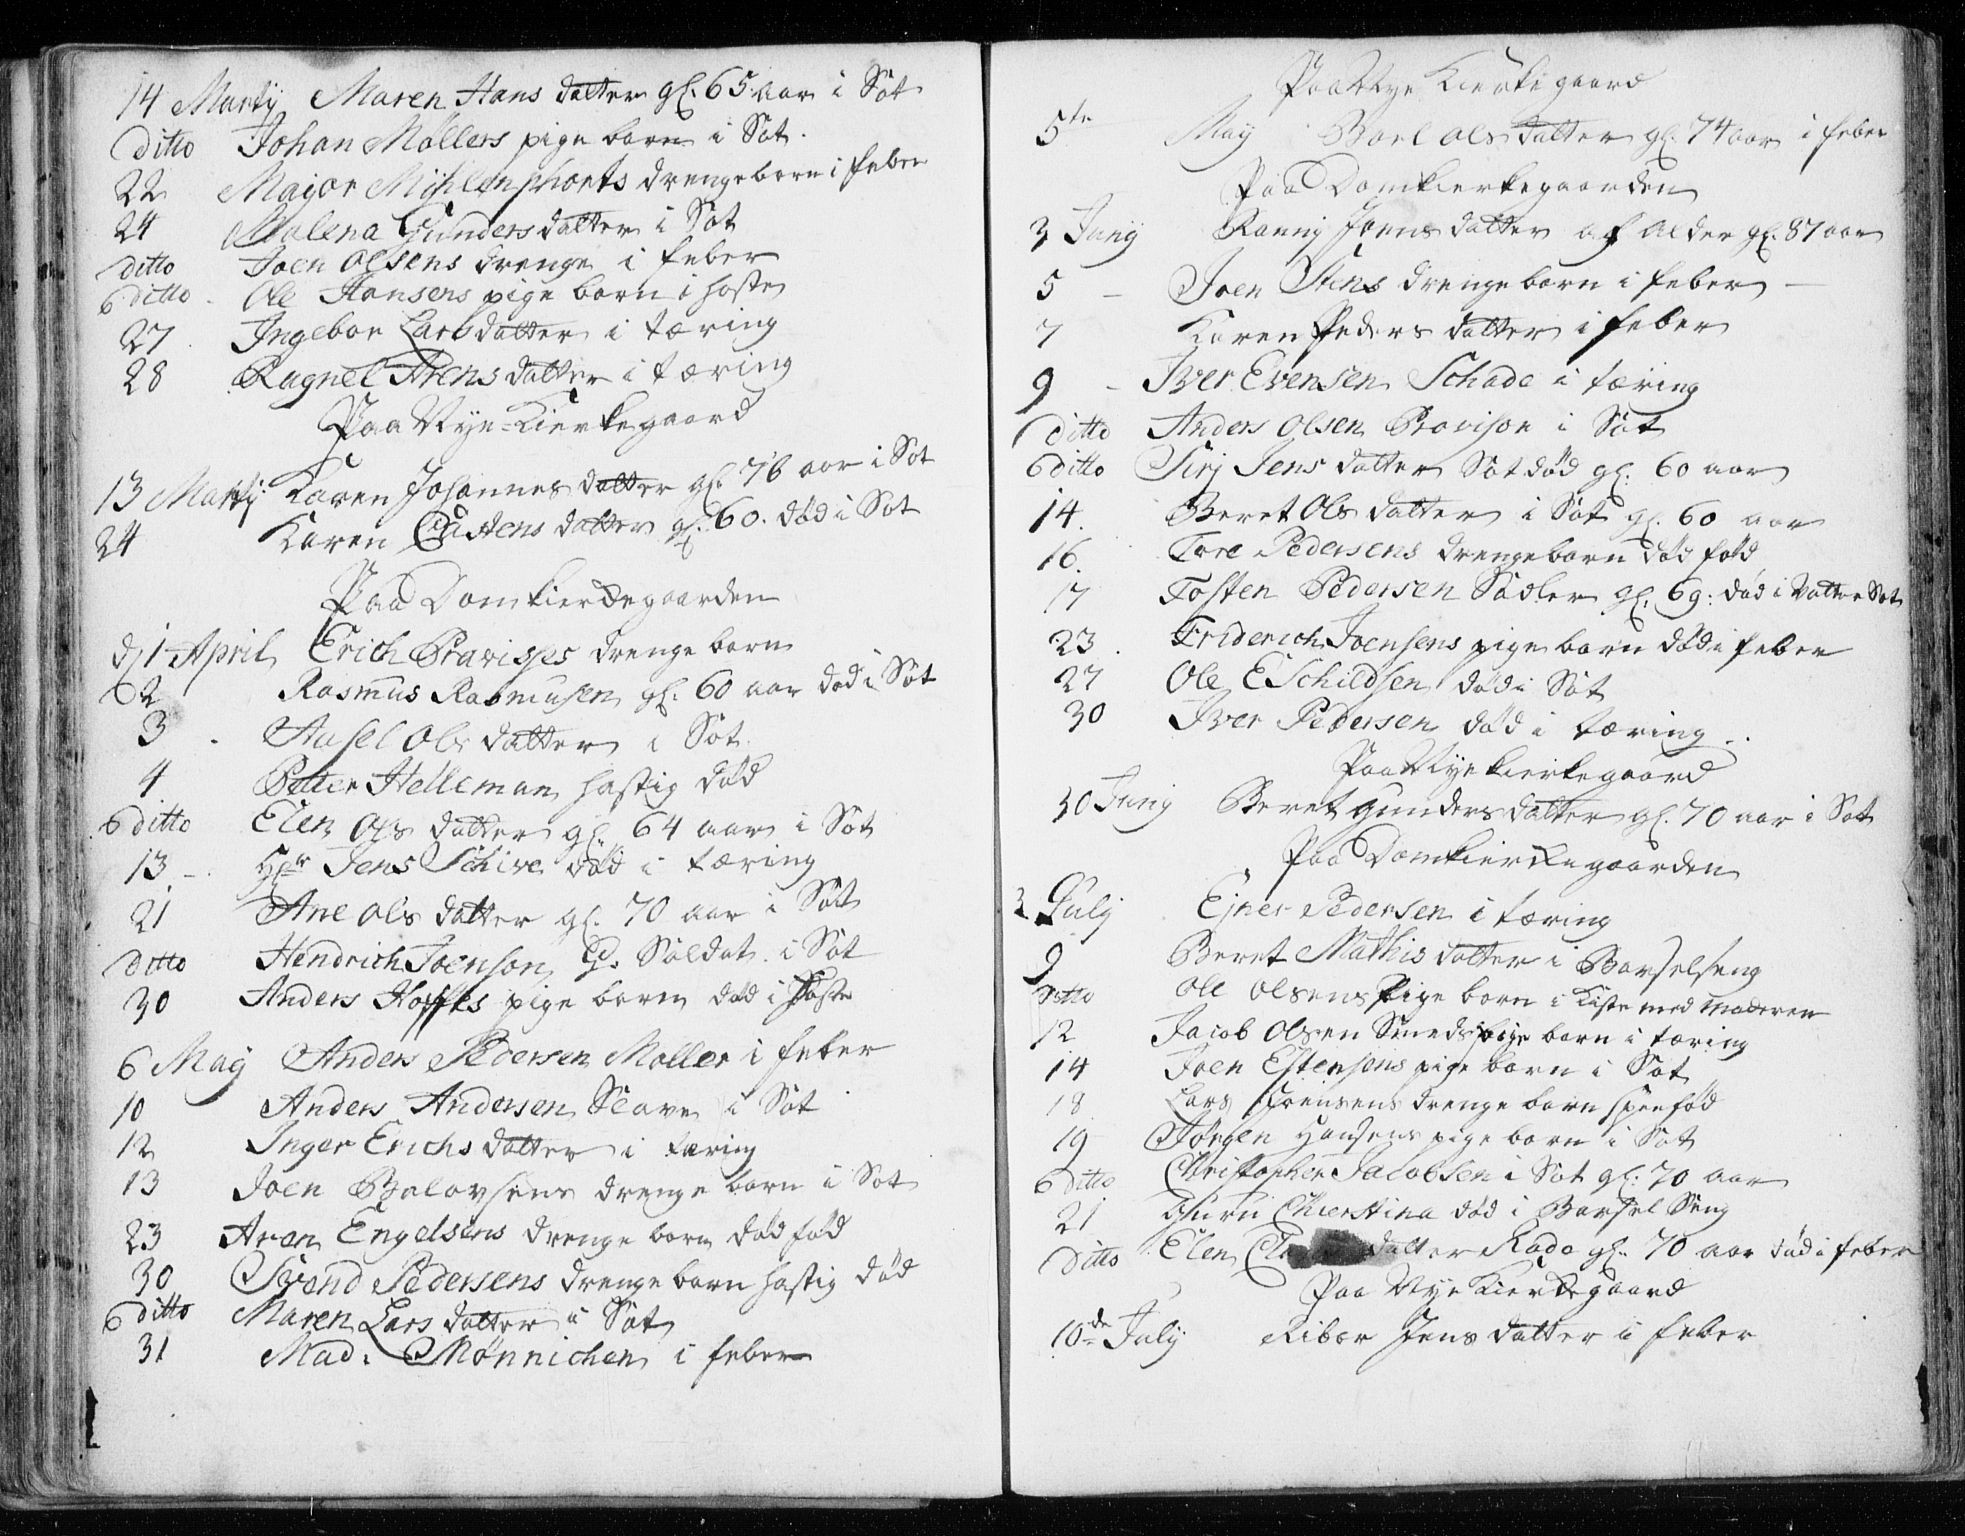 14 Martij Maren Hans datter gl. 65 aar i Sot
ditto Johan Møllers pige barn i Sot.
22 Major drengebarn i feber
24 Malena Gunders datter i Sot
ditto Joen Olsens drenge i feber
ditto Ole Hansens pige barn i hoste
27 Ingebor Lars datter i tæring
28 Ragnel Arens datter i tæring
Paa Nye-Kierkegaard
13 Martij Karen Johannes datter gl. 76 aar i Sot
24 Karen Custens datter gl. 60. død i Sot
Paa Domkierkegaarden
1 April Erich drenge barn
2 Rasmus Rasmusen gl. 60 aar død i Sot
3 Ols datter i Sot
4 Petter Helleman hastig død
ditto Elen Ols datter gl. 64 aar i Sot
13 Jens Schive død i tæring
21 Ane Ols datter gl. 70 aar i Sot
ditto Hendrich Joenson Soldat i Sot
30 Anders pige barn død i Hoste
6 May Anders Pedersen Møller i feber
10 Anders Andersen Slave i Sot
12 Inger Erichs datter i tæring
13 Joen drenge barn i Sot
23 Aren Engelsens drenge barn død fød
30 Svend Pedersens drenge barn hastig død
ditto Maren Lars datter i Sot
31 Mad. Mønnichen i feber
Paa Nye Kierkegaard
5te May Boel Ols datter gl. 74 aar i feber
Paa Domkierkegaarden
3 Junij Ranny Joens datter af alder gl. 87 aar
5 – Joen Stens drenge barn i feber –
7 Karen Peders datter i feber
9 – Iver Evensen Schade i tæring
ditto Anders Olsen i Sot
ditto Siri Jens datter Sot død gl. 60 aar
14. Beret Ols datter i Sot gl. 60 aar
16. Tore Pedersens drengebarn død fød
17 Tosten Pedersen Sadler gl. 69: død i Vatter Sot
23. Friderich Joensens pige barn død i feber
27 Ole Eschildsen død i Sot
30 Iver Pedersen død i tæring
Paa Nye kierkegaard
30 Junij Beret Gunders datter gl. 70 aar i Sot
Paa Domkierkegaarden
July Ejner Pedersen i tæring
9 Beret Mathis datter i Barselseng
ditto Ole Olsens Pige barn i Kiste med Moderen
12 Jacob Olsen Smeds pige barn i tæring
14 Joen Estensens pige barn i Sot
18 Lars drenge barn
19 Jørgen Hansens pige barn i Sot
ditto Christopher Jacobsen i Sot gl. 70 aar
21 Guru Chierstina død i Barsel Seng
ditto Elen datter Rado gl. 70 aar død i feber
Paa Nye Kierkegaard
10de July Ribor Jens datter i feber